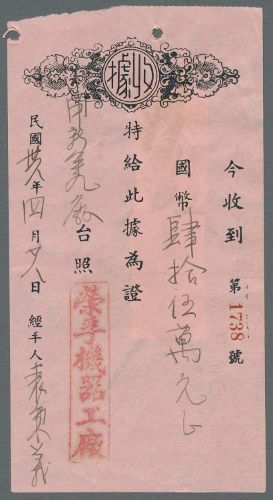 收據
今收到
第 1738 號
國幣肆拾伍萬元正
特給此據為證
台照
榮孚機器工廠
民國卅八年四月廿八日 經手人 袁東義